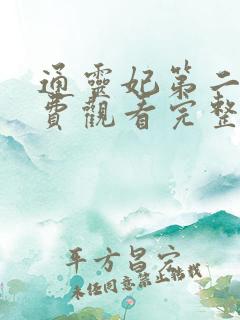 通靈妃第二
費觀看完整
平方昌宍
未任同意禁止轉找